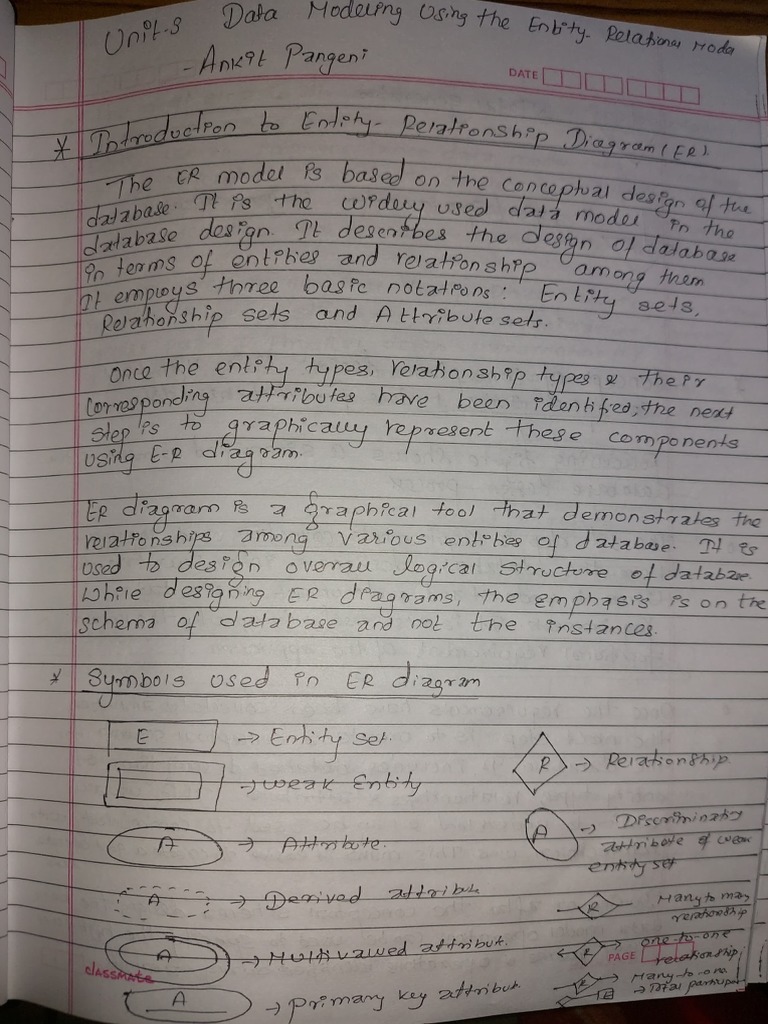 Unit-3 Data Modeling Using the Entity-Relational Model
-Ankit Pangeni
DATE
* Introduction to Entity-Relationship Diagram (ER).
The ER model is based on the conceptual design of the
database. It is the widely used data model in the
database design. It describes the design of database
in terms of entities and relationship among them
It employs three basic notations: Entity sets,
Relationship sets and Attribute sets.
Once the entity types, relationship types & their
corresponding attributes have been identified, the next
step is to graphically represent these components
using E-R diagram.
ER diagram is a graphical tool that demonstrates the
relationships among various entities of database. It is
used to design overall logical structure of database.
While designing ER diagrams, the emphasis is on the
schema of database and not the instances.
* Symbols used in ER diagram
E → Entity set.
R → Relationship
→ weak Entity
A → Attribute.
A → Discriminatry
attribute of weak
entity set
A → Derived attribute
R Many to many
relationship
A → Multivalued attribut.
R one-to-one
relationship
classmate
PAGE
A → primary key attribut
R Many-to-one
E → Total particpan